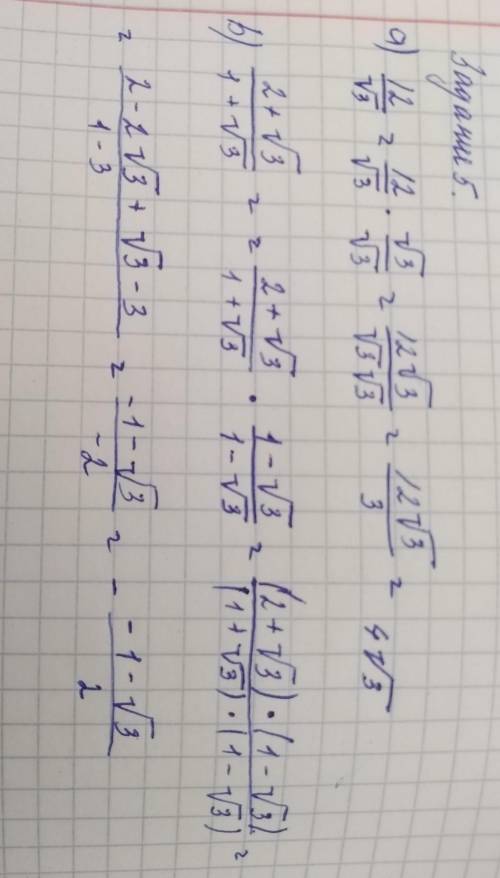 Задание 5.
a) 12/√3 = 12/√3 · √3/√3 = 12√3/√3√3 = 12√3/3 = 4√3
b) 2+√3/1+√3 = = 2+√3/1+√3 · 1-√3/1-√3 = (2+√3)·(1-√3)/(1+√3)·(1-√3) =
= 2-2√3+√3-3/1-3 = -1-√3/-2 = - -1-√3/2